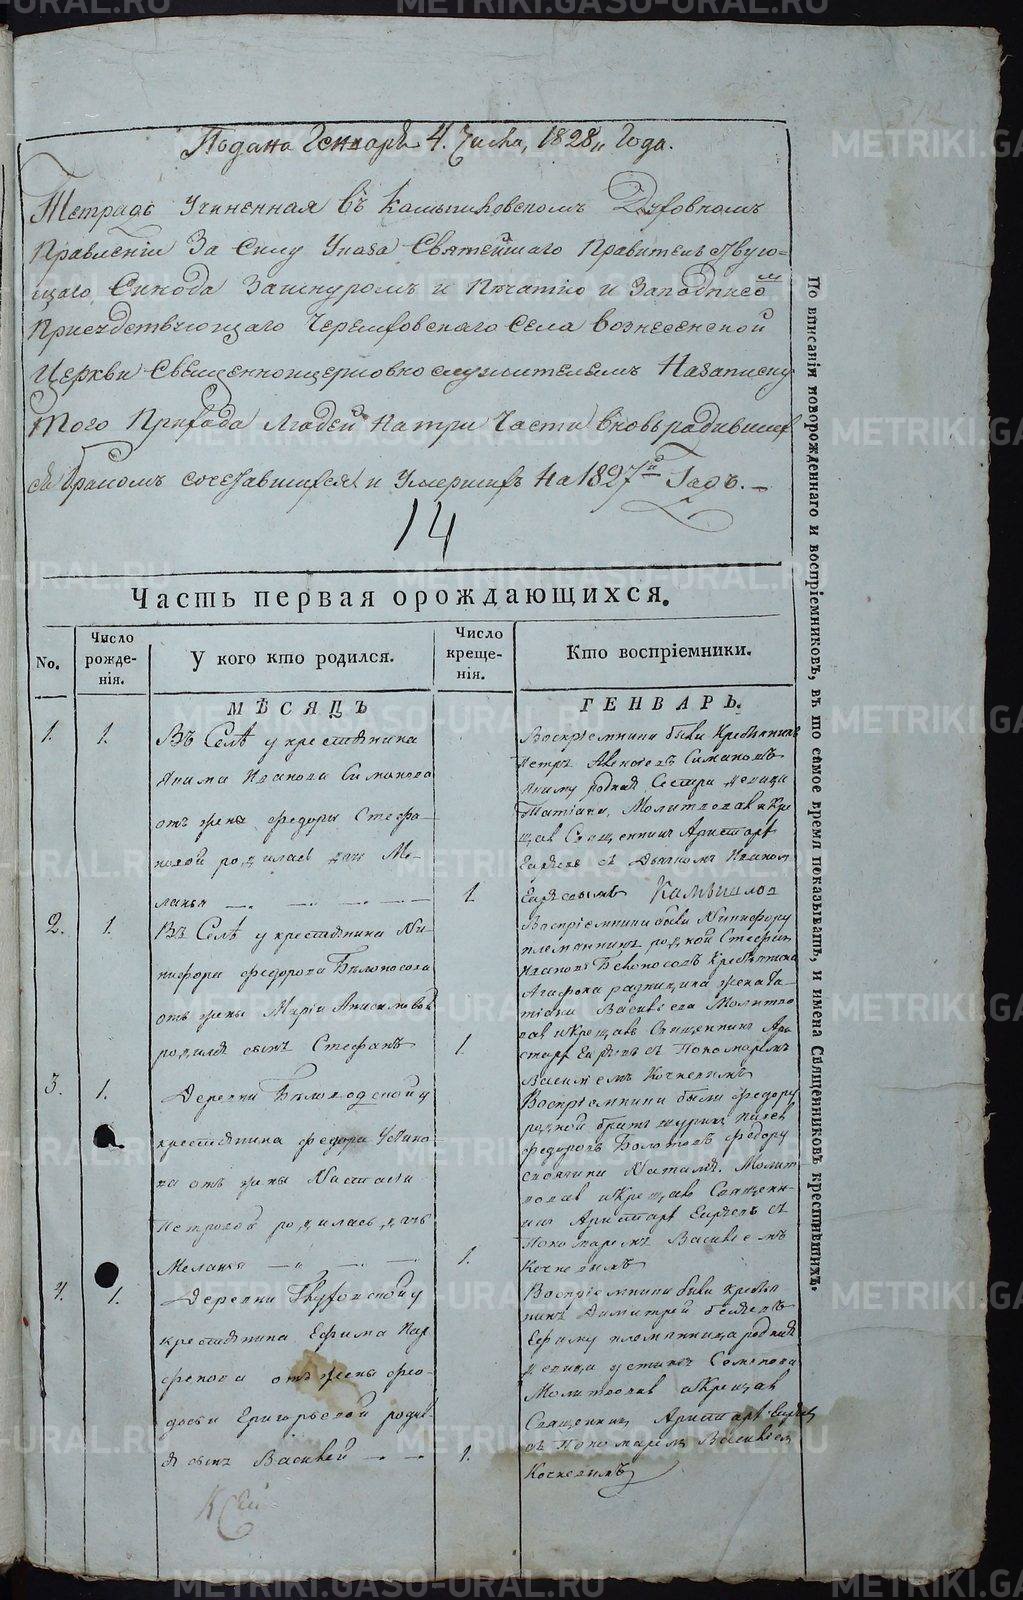 Подана Генваря 4. Числа, 1828 Года.
Тетрадь Учиненная въ Камышловскомъ Духовномъ
Правленіи За Силу Указа Святейшаго Правительствую-
щаго Синода Зашнуромъ и Печатію и Заподписомъ
Присудствующаго Черемховскаго Села Вознесенской
Церкви Священноицерковнослужителемъ Назаписку
того Прихода Людей На три Части вновьрадивших
ся Бракомъ сочетавшихся и Умершихъ На 1827й Годъ. —
14
Часть первая орождающихся.
No.
Число рожде-нія.
У кого кто родился.
Число креще-нія.
Кто воспріемники.
МѢСЯЦЪ ГЕНВАРЬ.
1. 1.
Въ Селѣ у крестьянина
Акима Иванова Симанова
отъ жены Федоры Стефа-
новой родилась дочь Ме-
ланья — — — — 1.
Воспріемники были Крестьянинъ
Петръ Симановъ
Акиму родная Сестра девица
Татіана, Молитвовавъ и Кре-
щавъ Священникъ Аристархъ
съ Дьячкомъ Иваномъ
Камышлов
2. 1.
Въ Селѣ у крестьянина Ни-
кифора Федорова Белоносова
отъ жены Маріи Анисимовой
родился сынъ Стефанъ 1.
Воспріемники были Никифору
племянникъ родной Стефанъ
Ивановъ Белоносовъ Крестьянина
Агафона жена Та-
тіана Васильева Молитво-
вавъ и Крещавъ Священникъ Ари-
стархъ съ Пономаремъ
Василіемъ Кочневымъ
3. 1.
Деревни у
крестьянина Федора Устино-
ва отъ жены Настасьи
Петровой родилась дочь
Меланья — — — 1.
Воспріемники были Федору
родной братъ
Федоровъ Федору
Наталья. Молит-
вовав и Крещавъ Священ-
никъ Аристархъ съ
Пономаремъ Василіемъ
Кочневымъ
4. 1.
Деревни у
крестьянина Ефима Пар-
фенова отъ жены Фео-
досьи Григорьевой родил-
ся сынъ Василей — — 1.
Воспріемники были Крестья-
нинъ Димитрей
Ефиму племянница родная
девица Устинья Семенова
Молитвовавъ и Крещавъ
Священникъ Аристархъ
съ Пономаремъ Василіемъ
Кочневымъ
По вписаніи новорожденнаго и воспріемниковъ, въ то сѣмое время показывать, и имена Священниковъ крестившихъ.
METRIKI.GASO-URAL.RU